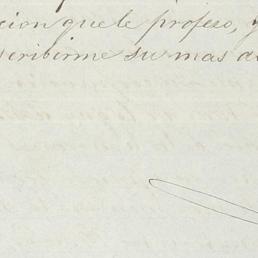 cion que le profeso, y
scribirme su mas a